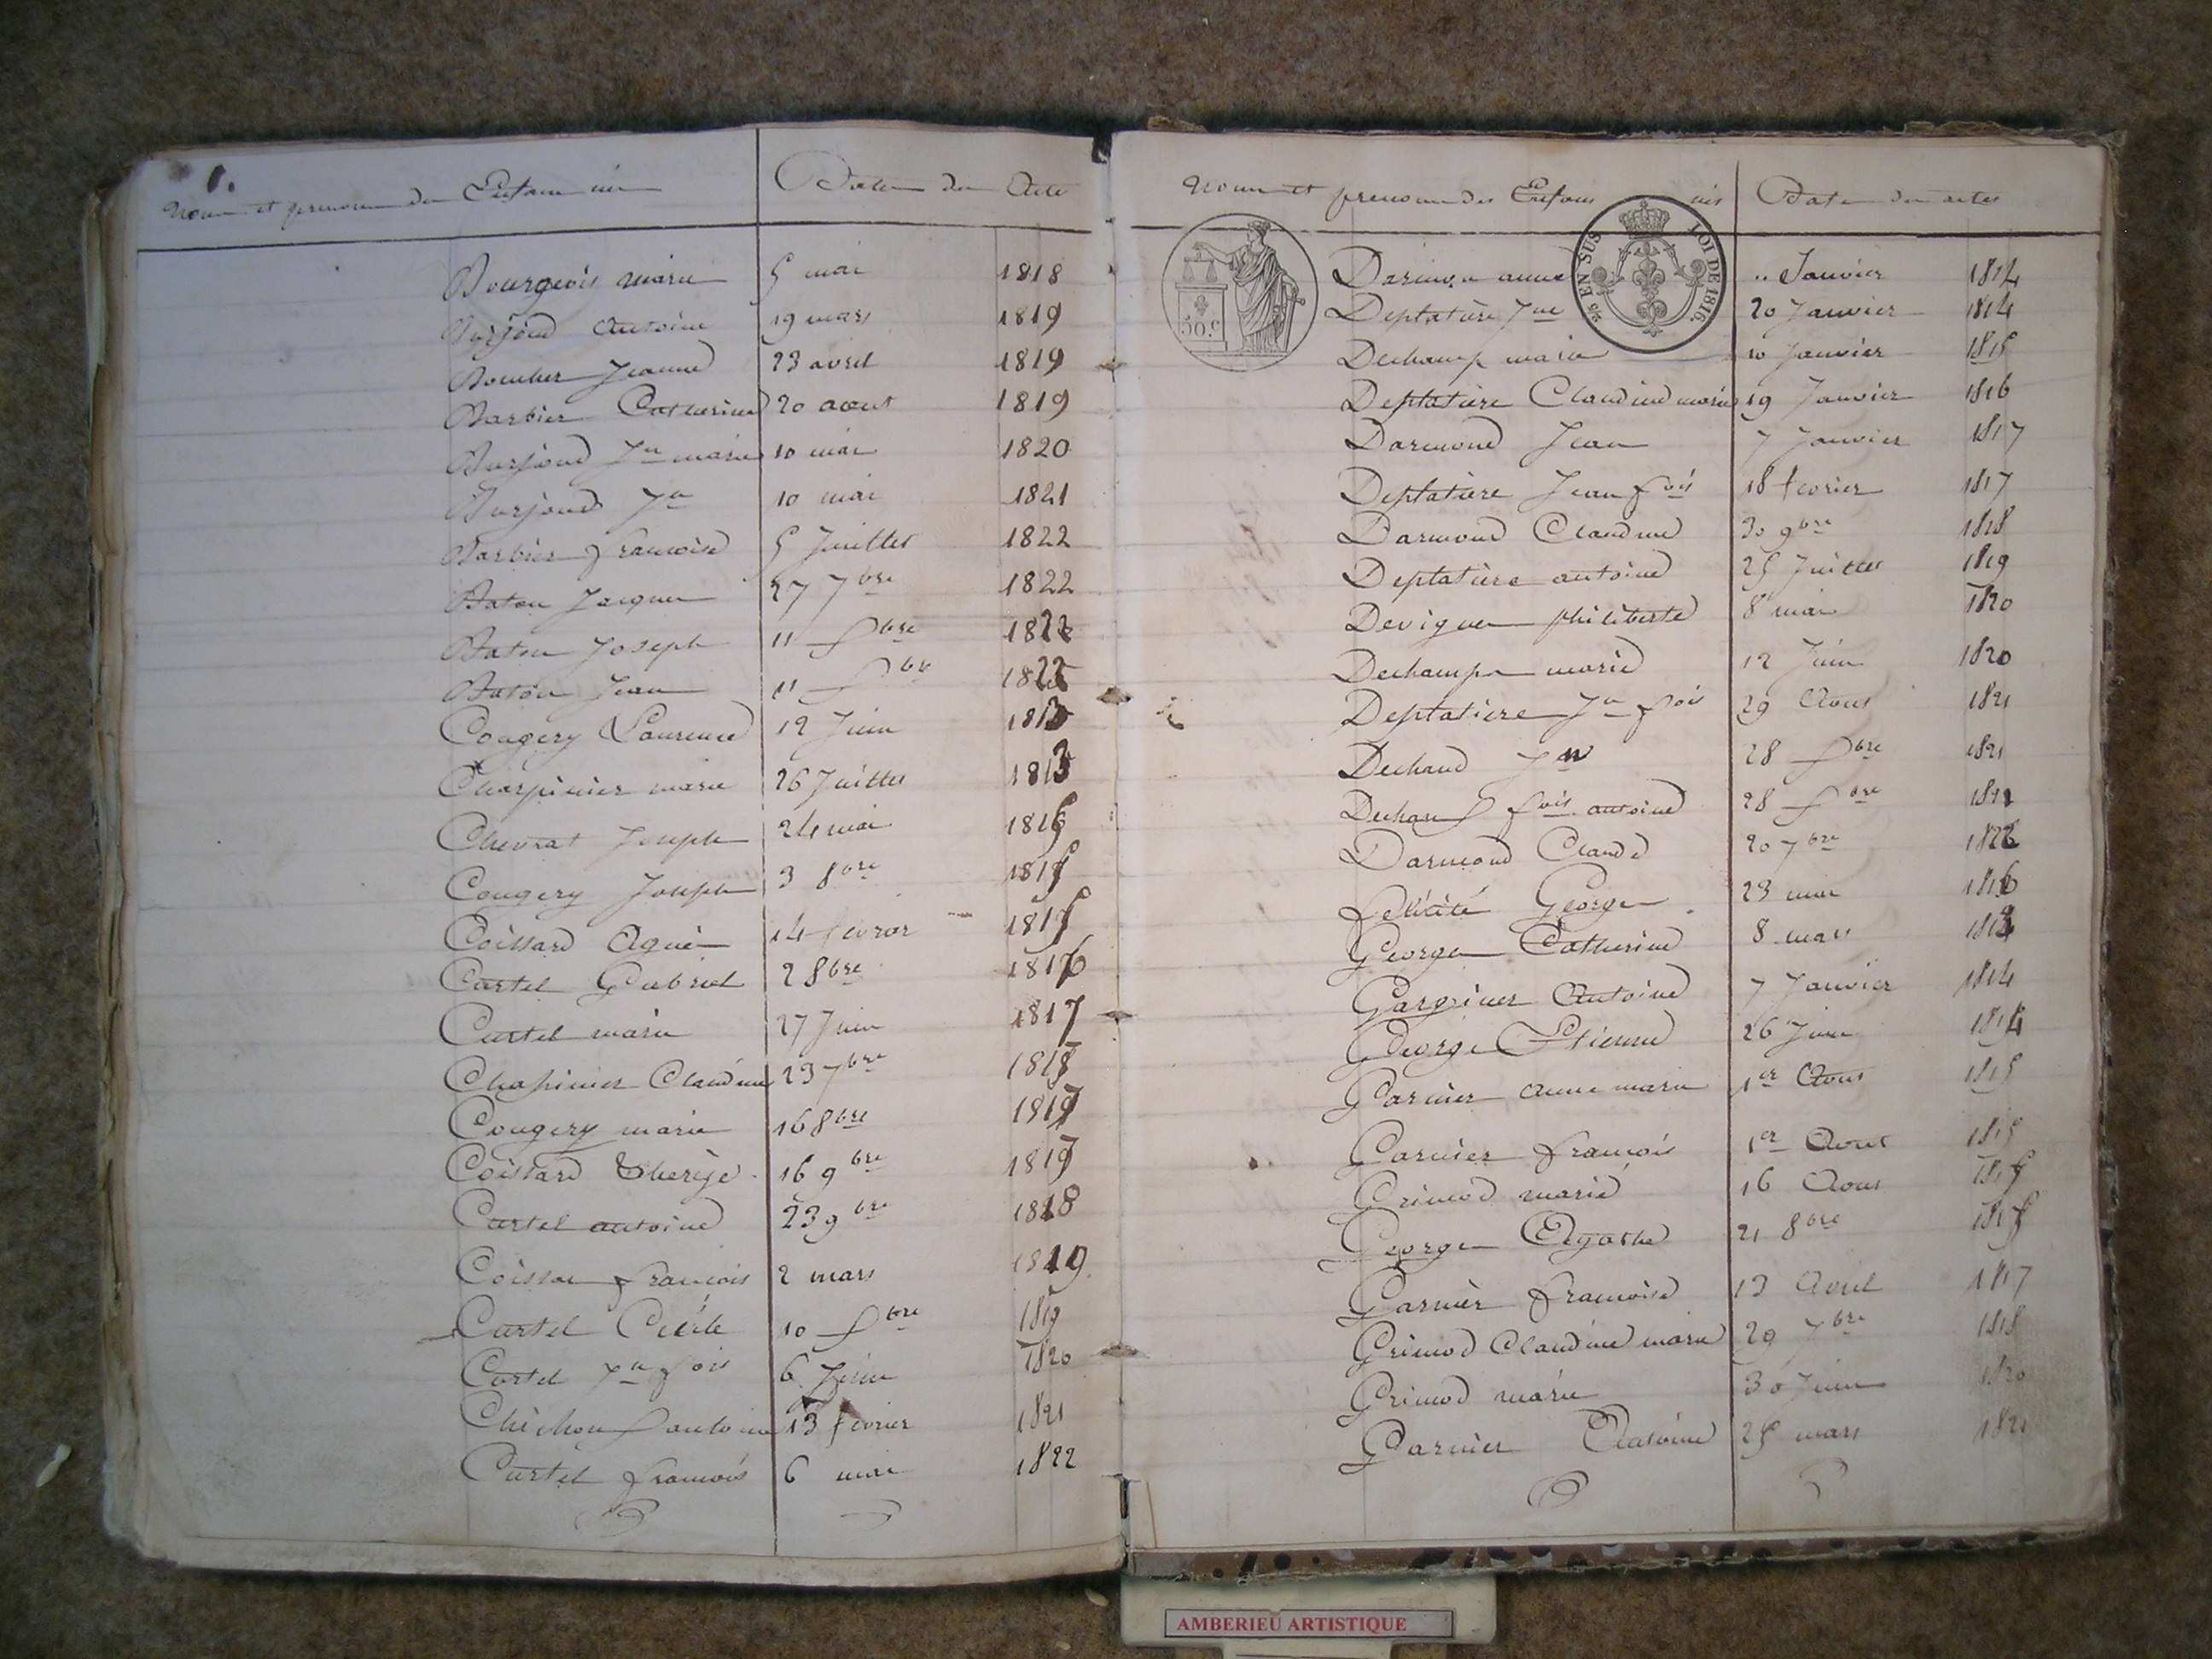 1.
Noms et prenoms des Enfans nés Date des Actes
Bourgeois marie 5 mai 1818
Burjoud Antoine 19 mars 1819
Boucher Jeanne 23 avril 1819
Barbier Catherine 20 aout 1819
Burjoud Jn marie 10 mai 1820
Burjoud Jn 10 mai 1821
Barbier francoise 5 Juillet 1822
Baton Jacques 27 7bre 1822
Baton Joseph 11 Xbre 1822
Baton Jean 11 Xbre 1822
Cougery Laurence 12 Juin 1813
Charpinier marie 26 Juillet 1813
Chevrat Joseph 24 mai
Cougery Joseph 3 8bre 1815
Coissard Agnès 14 fevrier
Curtel Gabriel 2 8bre 1816
Curtel marie 27 Juin 1817
Chapinier Claudine 23 7bre 1817
Cougery marie 16 8bre 1817
Coissard Therèse 16 9bre 1817
Curtel antoine 23 9bre 1818
Coissar francois 2 mars 1819
Curtel Cécile 10 Xbre 1819
Curtel Jn fois 6 Juin 1820
Chichoux antoine 13 fevrier 1821
Curtel francois 6 mai 1822
Noms et prenoms des Enfans nés Date des actes
50.c
25 EN SUS LOI DE 1816.
anne Janvier 1814
Deplatière Jne 20 Janvier 1814
Dechamp marie 10 Janvier 1815
Deplatière Claudine marie 19 Janvier 1816
Darmond Jean 7 Janvier 1817
Deplatière Jean fois 18 fevrier 1817
Darmond Claudine 30 9bre 1818
Deplatière antoine 25 Juillet 1819
Devignes philiberte 8 mai 1820
Dechamps marie 12 Juin 1820
Deplatière Jn fois 29 Aout 1821
Dechaud Jn 28 Xbre 1821
fois antoine 28 Xbre
Darmond Claude 20 7bre 1822
Félicité George 23 mai
George Catherine 8 mars 1813
Garpinier Antoine 7 Janvier 1814
George Etienne 26 Juin 1814
Garnier anne marie 1er Aout 1815
Garnier francois 1er Aout 1815
Grimod marie 16 Aout 1815
George Agathe 21 8bre
Garnier francoise 13 Avril 1817
Grimod Claudine marie 29 7bre 1818
Grimod marie 30 Juin 1820
Garnier Antoine 25 mars 1821
AMBERIEU ARTISTIQUE